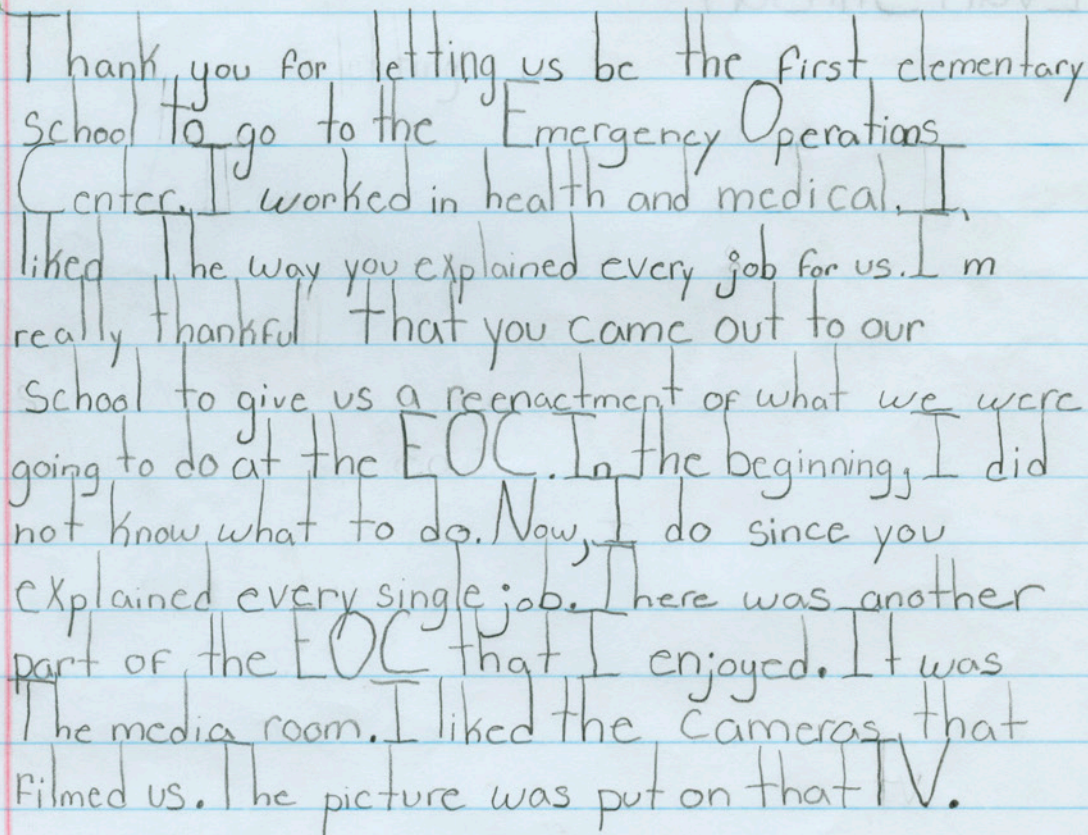 Thank you for letting us be the first elementary
school to go to the Emergency Operations
Center. I worked in health and medical. I
liked The way you explained every job for us. I m
really thankful that you came out to our
School to give us a reenactment of what we were
going to do at the EOC. In the beginning, I did
not know what to do. Now, I do since you
explained every single job. There was another
part of the EOC that I enjoyed. It was
The media room. I liked the cameras that
filmed us. The picture was put on that TV.